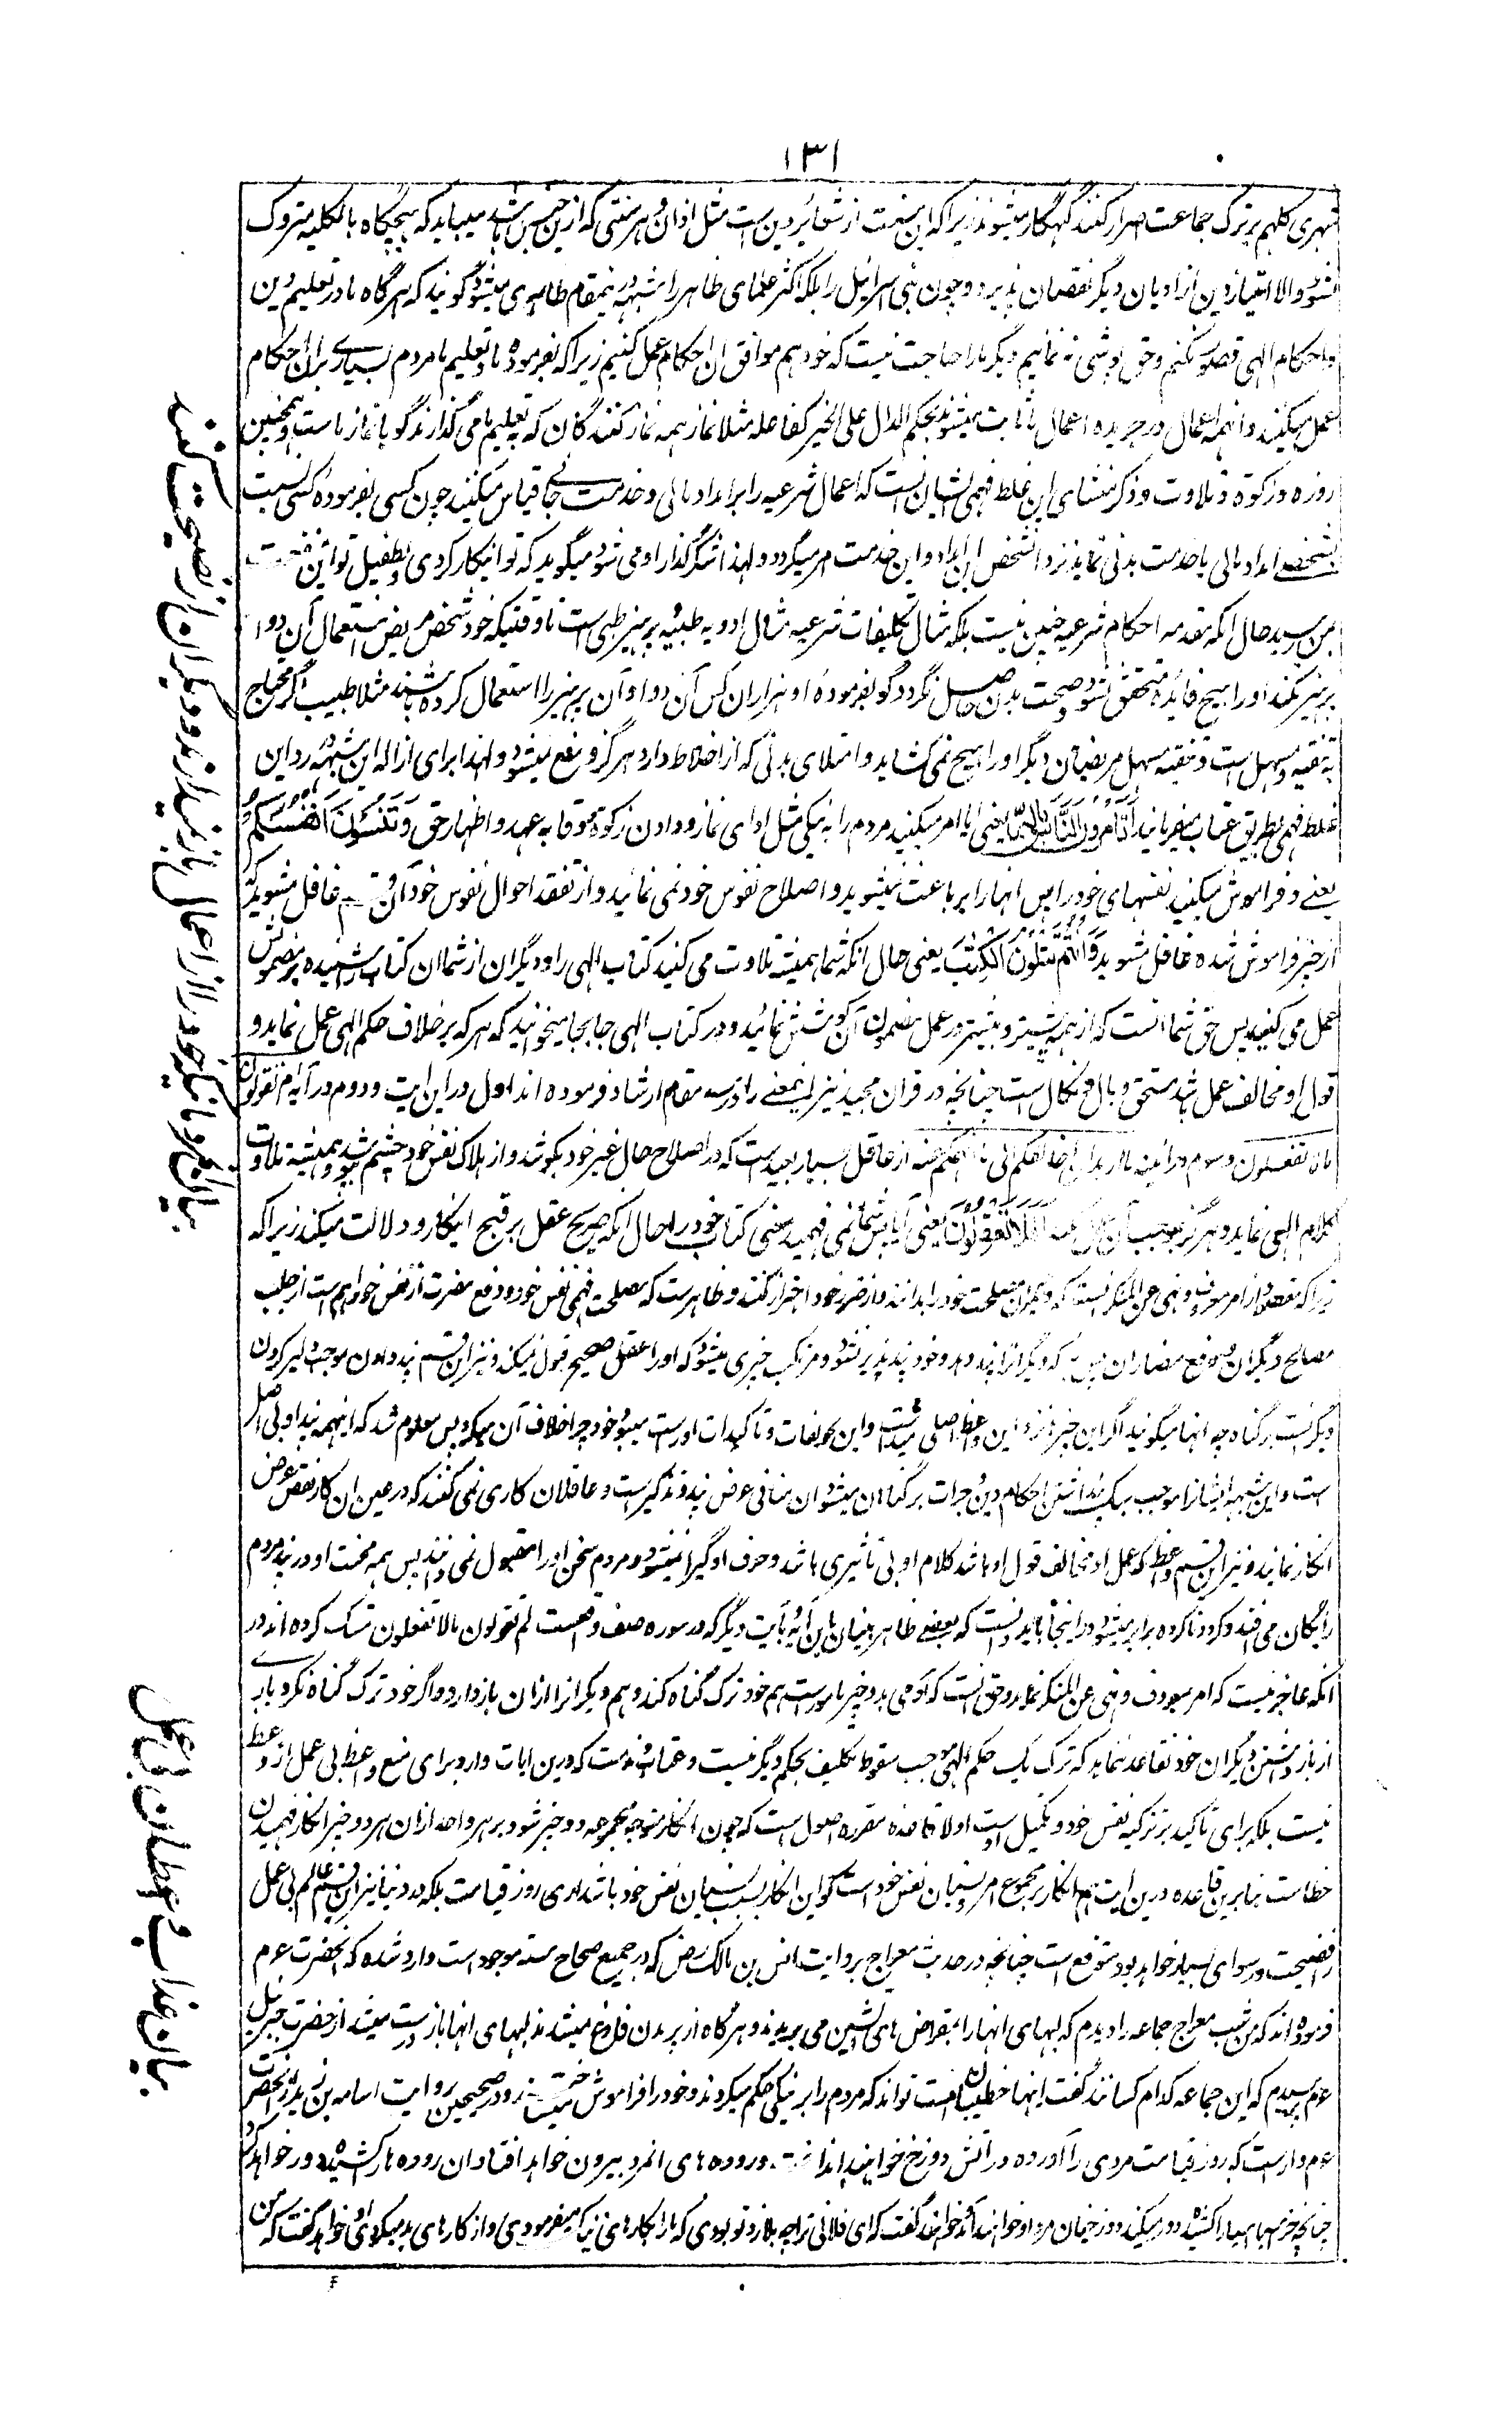 ۱۳۱
شهری کلهم بر ترک جماعت اصرار کنند گنهگار میشوند زیرا که این سنت از شعائر دین است مثل اذان و هر سنتی که ازین جنس باشد میباید که هیچگاه بالکلیه متروک
نشود و الا امتیاز دین از ادیان دیگر نقصان پذیرد و چون بنی اسرائیل را بلکه اکثر علمای ظاهر را شبهه درینمقام طاری میشود گویند که هر گاه ما در تعلیم دین
و احکام الهی قصور نکنیم و حق پوشی نه نمائیم دیگر ما را حاجت نیست که خود هم موافق ان احکام عمل کنیم زیرا که بفرموده ما و تعلیم ما مردم بسیاری بران احکام
عمل میکنند و انهمه اعمال در جریده اعمال ما ثابت میشوند بحکم الدال علی الخیر کفاعله مثلا نماز همه نماز کنندگان که به تعلیم ما می گذارند گویا نماز ماست و همچنین
روزه و زکوة و تلاوت و ذکر منشای این غلط فهمی ایشان انست که اعمال شرعیه را بر امداد مالی و خدمت جانی قیاس میکنند چون کسی بفرموده کسی نسبت
بشخصی امداد مالی یا خدمت بدنی نماید نزد انشخص این امداد و این خدمت امر میگردد و لهذا شکر گذار او می شود میگوید که تو اینکار کردی و بطفیل تو این منفعت
بمن رسید حال انکه مقدمه احکام شرعیه چنین نیست بلکه مثال تکلیفات شرعیه مثال ادویه طبیه و پرهیز طبی است تا وقتیکه خود شخص مریض استعمال آن دوا و
پرهیز نکند او را هیچ فائده متحقق نشود و صحت بدن حاصل نگردد گو بفرموده او هزاران کس آن دوا و آن پرهیز را استعمال کرده باشند مثلا طبیب اگر محتاج
به تنقیه و مسهل است و تنقیه مسهل مریضان دیگر او را هیچ نمی کشاید و امتلای بدنی که از اخلاط دارد هرگز دفع نمیشود و لهذا برای ازاله این شبهه و رد این
غلط فهمی بطریق عتاب میفرمایند أَتَأْمُرُونَ النَّاسَ بِالْبِرِّ یعنی ایا امر میکنید مردم را به نیکی مثل ادای نماز و دادن زکوة و وفا به عهد و اظهار حق وَتَنْسَوْنَ أَنْفُسَكُمْ
یعنی و فراموش میکنید نفسهای خود را پس انها را بر باعث نمیشوید و اصلاح نفوس خود نمی نمائید و از تفقد احوال نفوس خود غافل میشوید
از خبر فراموش شده غافل مشوید وَأَنْتُمْ تَتْلُونَ الْكِتٰبَ یعنی حال انکه شما همیشه تلاوت می کنید کتاب الهی را و دیگران از شما ان کتاب را شنیده بر مضمونش
عمل می کنند پس حق شما انست که از همه پیشتر و بیشتر در عمل بمضمون آن کوشش نمائید و در کتاب الهی جابجا میخوانید که هر که بر خلاف حکم الهی عمل نماید و
قول او مخالف عمل باشد مستحق وبال و نکال است چنانچه در قران مجید نیز این معنی را در سه مقام ارشاد فرموده اند اول در این ایت و دوم در آیه لم تقولون
ما لا تفعلون و سوم در آیه ما ارید ان اخالفکم الی ما انهاکم عنه از عاقل بسیار بعید است که در اصلاح حال غیر خود بکوشد و از هلاک نفس خود چشم پوشد و همیشه تلاوت
کلام الهی نماید و هرگز بموجب آن عمل نکند أَفَلَا تَعْقِلُونَ یعنی آیا پس شما نمی فهمید معنی کتاب خود را حال انکه صریح عقل بر قبح اینکار و دلالت میکند زیرا که
زیرا که مقصود از امر معروف و نهی عن المنکر انست که دیگران مصلحت خود را بدانند و از ضرر خود احتراز کنند و ظاهر است که مصلحت فهمی نفس خود و دفع مضرت از نفس خود اهم است از جلب
مصالح دیگران و دفع مضار ان که دیگرانرا پند دهد و خود پند پذیر نشود و مرتکب چیزی میشود که او را عقل صحیح قبول نمیکند و نیز این قسم پند دادن موجب دلیر کردن
دیگرانست بر گناه چه انها میگویند اگر این چیز نزد این واعظ اصلی نداشت و این تخویفات و تاکیدات او راست میبود خود چرا خلاف آن میکرد پس معلوم شد که اینهمه پند او بی اصل
است و این شبهه ایشانرا موجب سبک پنداشتن احکام دین و جرات بر گناهان میشود ان منافی غرض پند و تذکیر است و عاقلان کاری نمی کنند که در عین ان کار نقض غرض
انکار نمایند و نیز این قسم واعظ که عمل او مخالف قول او باشد کلام او بی تاثیری باشد و حرف او گیرا نمیشود و مردم سخن او را مقبول نمی دارند پس همه محنت او در پند مردم
رائگان می افتد و کرده ناکرده برابر میشود در اینجا باید دانست که بعضی ظاهر بینان باین آیه و بآیت دیگر که در سوره صف واقعست لم تقولون مالا تفعلون تمسک کرده اند در
انکه فاجر نیست که امر بمعروف و نهی عن المنکر نماید و حق انست که آدمی بدو چیز مامورست هم خود ترک گناه کند و هم دیگرانرا ازان باز دارد و اگر خود ترک گناه نکرد باری
از باز داشتن دیگران خود تقاعد ننماید که ترک یک حکم الهی موجب سقوط تکلیف بحکم دیگر نیست و عتاب و مذمت که درین ایات وارد برای منع واعظ بی عمل از وعظ
نیست بلکه برای تاکید بر تزکیه نفس خود و تکمیل اوست اولا قاعده مقرره اصول است که چون انکار متوجه بمجموعه دو چیز شود بر هر واحد ازان هر دو چیز انکار فهمیدن
خطاست بنا برین قاعده درین ایت هم انکار بر مجموع امر و نسیان نفس خود است گو این انکار بسبب نسیان نفس خود باشد ادری روز قیامت بلکه در دنیا نیز این قسم عالم بی عمل
را فضیحت و رسوای بسیار خواهد بود متوقع است چنانچه در حدیث معراج بروایت انس بن مالک رض که در جمیع صحاح سته موجود است وارد شده که آنحضرت عوم
فرموده اند که من شب معراج جماعه را دیدم که لبهای انها را بمقراض های آتشین می بریدند و هر گاه از بریدن فارغ میشدند لبهای انها باز درست میشد از حضرت جبرئیل
عوم پرسیدم که این جماعه کدام کسانند گفت اینها خطیبان امت تواند که مردم را بر نیکی حکم میکردند و خود را فراموش می ساختند و در صحیحین بروایت اسامه بن زید از آنحضرت
عوم وارد است که روز قیامت مردی را آورده در آتش دوزخ خواهند انداخت و روده های انمرد بیرون خواهد افتاد و ان روده ها را کشیده دور خواهد کرد
چنانچه خر آسیا آسیا را کشیده دور میکند دوزخیان مرد او خواهند آمد و خواهند گفت که ای فلانی ترا چه بلا زد تو بودی که ما را بکارهای نیک میفرمودی و از کارهای بد میکردی او خواهد گفت که من
بیان خود را از اعمال و دیگران را نصیحت کنند
بیان عذاب واعظان بی عمل